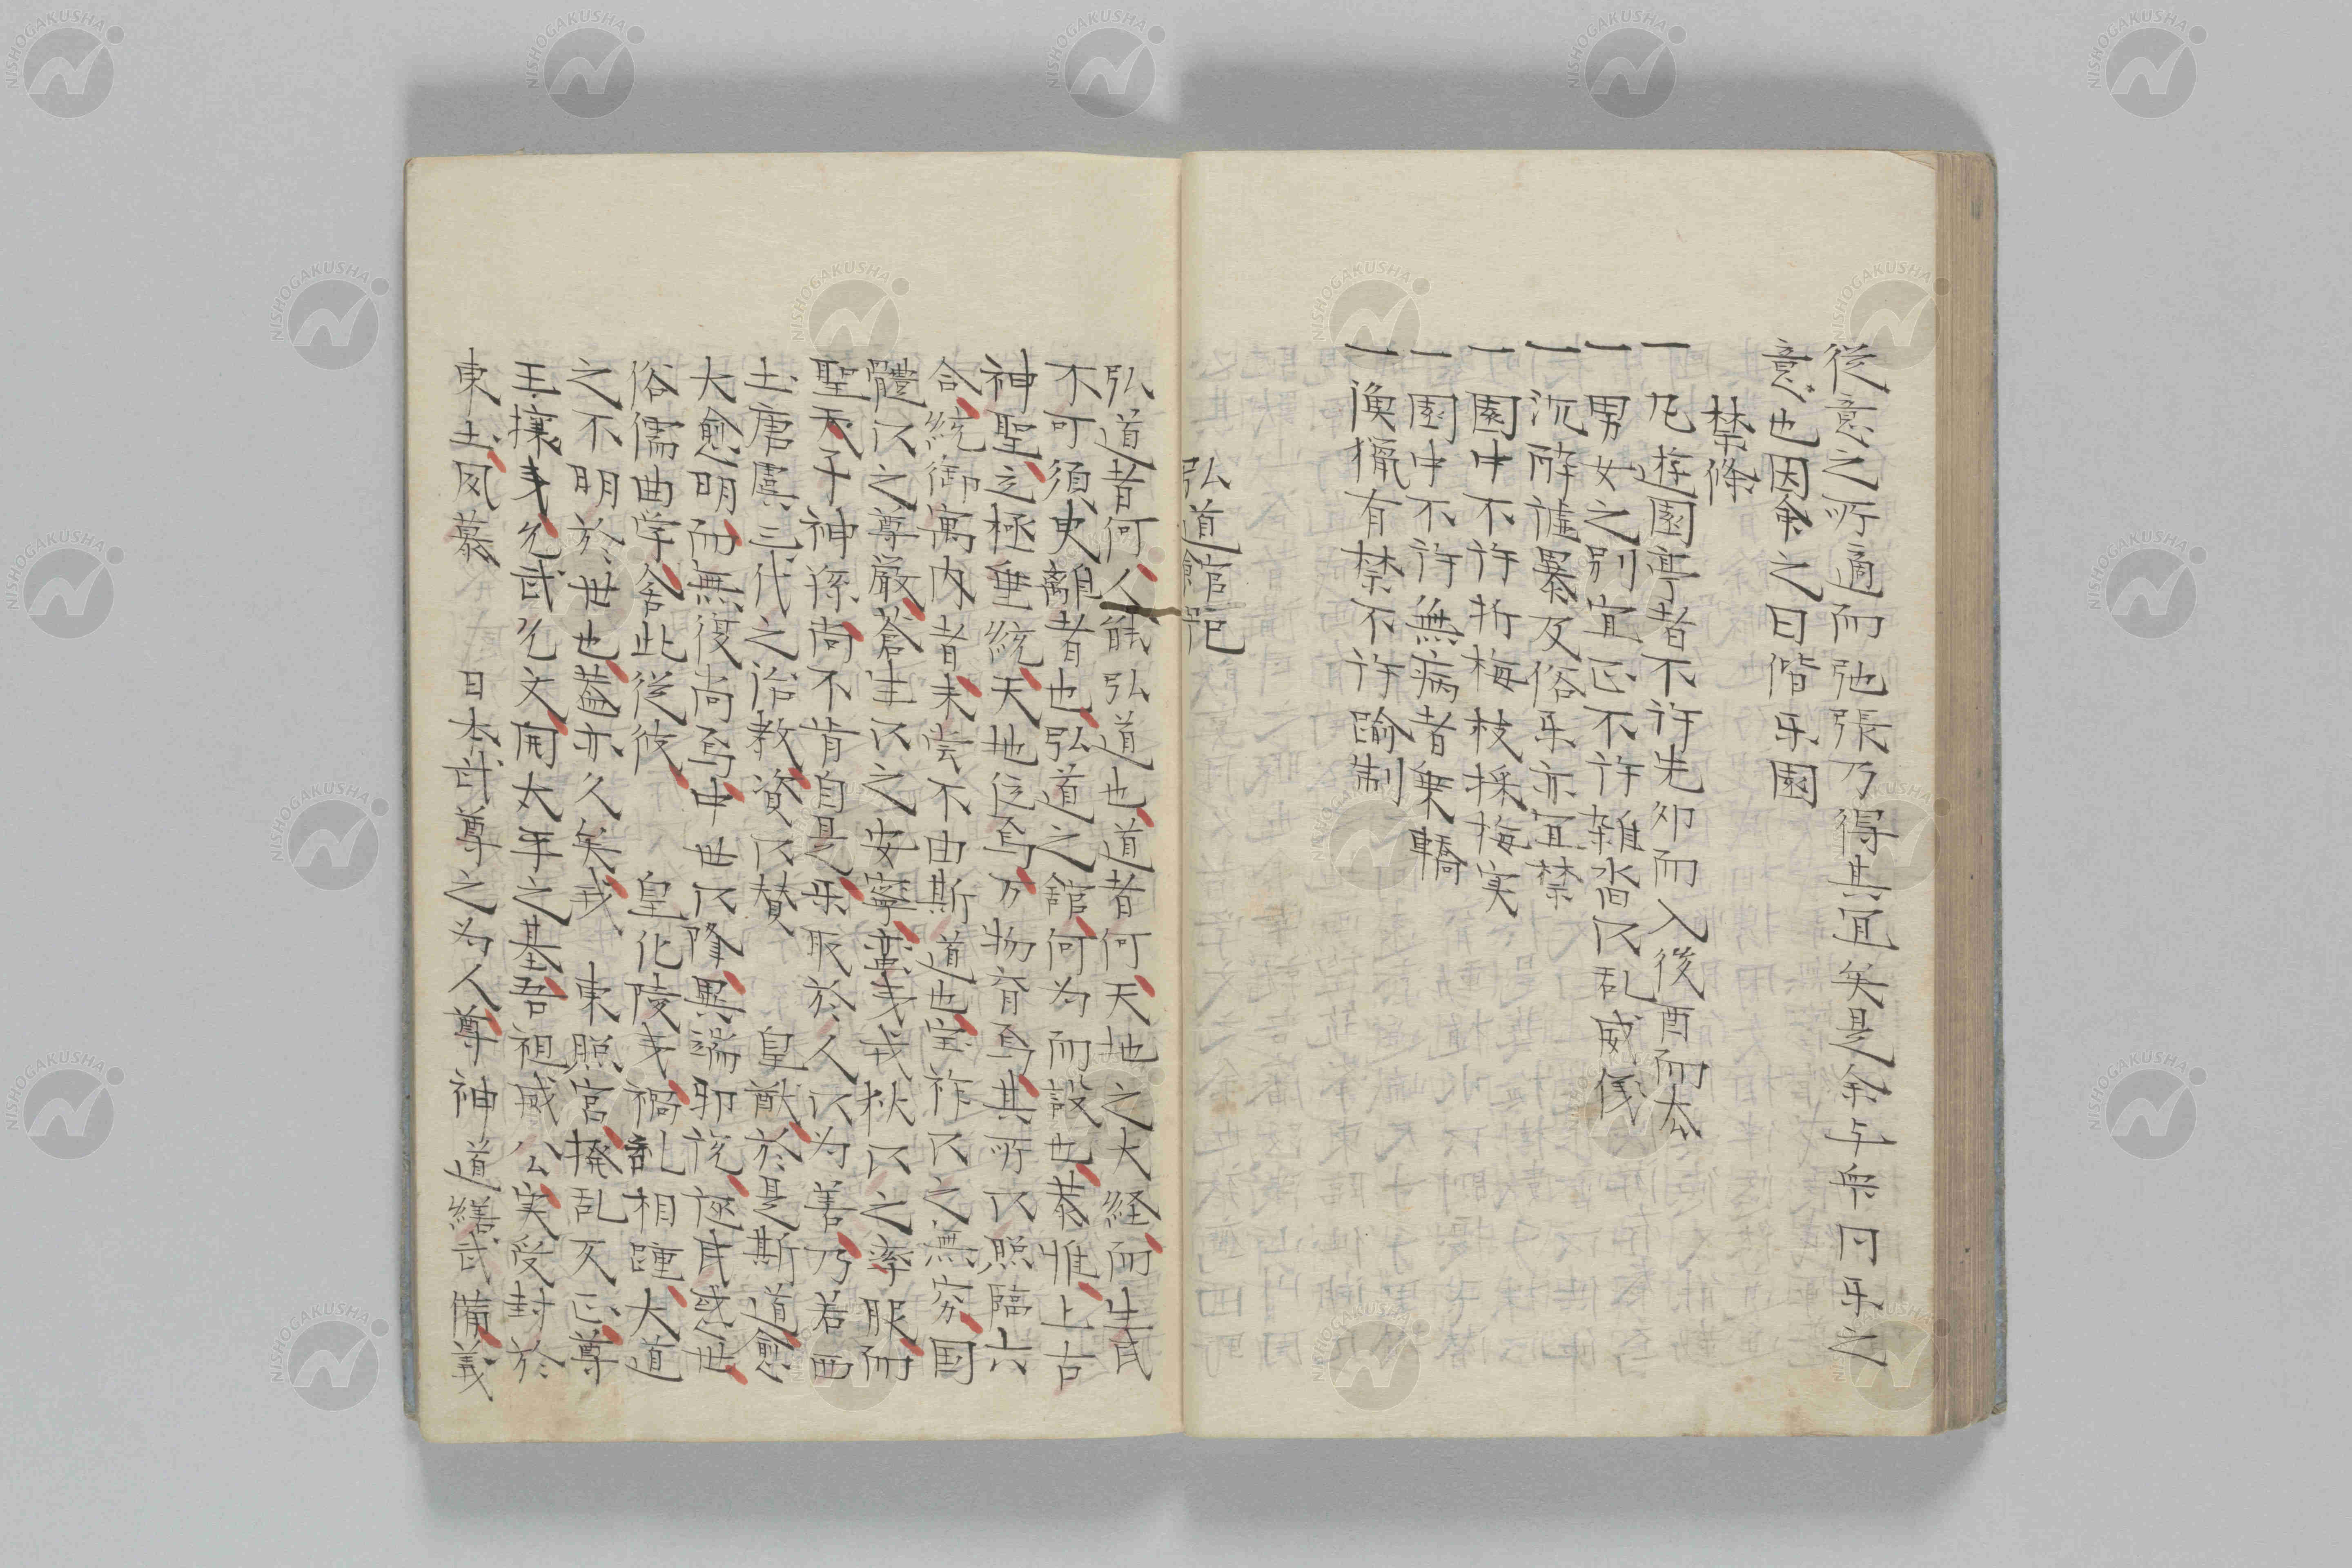 従意之所適而弛張乃得其宜矣是余与衆同乐之
意也因命之曰偕乐園
禁條
一凡遊園亭者不許先卯而入後酉而去
一男女之別宜正不許雑沓以乱威儀
一沉酔謔暴及俗乐亦宜禁
一園中不許折梅枝採梅実
一園中不許無病者乗轎
一漁猟有禁不許踰制
弘道館記
弘道者何人能弘道也道者何天地之大経而生民
不可須臾離者也弘道之館何为而設也恭惟上古
神聖立極垂統天地位焉万物育焉其所以照臨六
合統御寓内者未尝不由斯道也宝祚以之無窮国
體以之尊厳蒼生以之安寧蛮夷戎狄以之率服而
聖天子神孫尚不肯自足乐取於人以为善乃若西
土唐虞三代之治教資以賛皇猷於是斯道愈
大愈明而無復尚焉中世以降異端邪説誣民惑世
俗儒曲学舎此従彼皇化陵夷禍乱相踵大道
之不明於世也蓋亦久矣我東照宮撥乱反正尊
王攘夷允武允文開太平之基吾祖威公実受封於
東土夙慕日本武尊之为人尊神道繕武備義